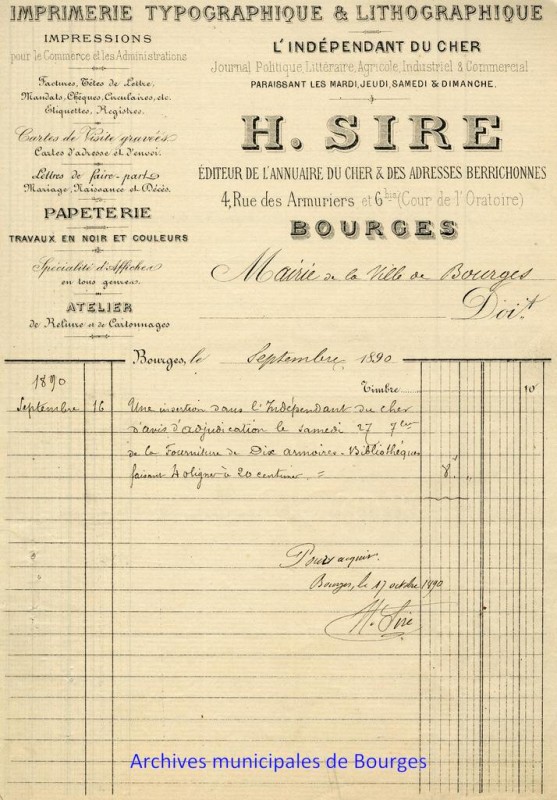 IMPRIMERIE TYPOGRAPHIQUE & LITHOGRAPHIQUE
IMPRESSIONS
pour le Commerce et les Administrations
Factures, Têtes de Lettre,
Mandats, Chèques, Circulaires, etc.
Etiquettes, Registres.
Cartes de Visite gravées
Cartes d'adresse et d'envoi.
Lettres de faire-part
Mariage, Naissance et Décès.
PAPETERIE
TRAVAUX EN NOIR ET COULEURS
Spécialité d'Affiches
en tous genres.
ATELIER
de Reliure et de Cartonnages
L'INDÉPENDANT DU CHER
Journal Politique, Littéraire, Agricole, Industriel & Commercial
PARAISSANT LES MARDI, JEUDI, SAMEDI & DIMANCHE.
H. SIRE
ÉDITEUR DE L'ANNUAIRE DU CHER & DES ADRESSES BERRICHONNES
4, Rue des Armuriers et 6 bis (Cour de l'Oratoire)
BOURGES
Mairie de la Ville de Bourges
Doit
Bourges, le Septembre 1890
1890 Timbre 10
Septembre 16 Une insertion dans l'Indépendant du cher
d'avis d'adjudication le samedi 27 7bre
de la Fourniture de Dix armoires-Bibliothèques
faisant 40 lignes à 20 centimes = 8 "
Pour acquit
Bourges, le 17 octobre 1890
H. Sire
Archives municipales de Bourges